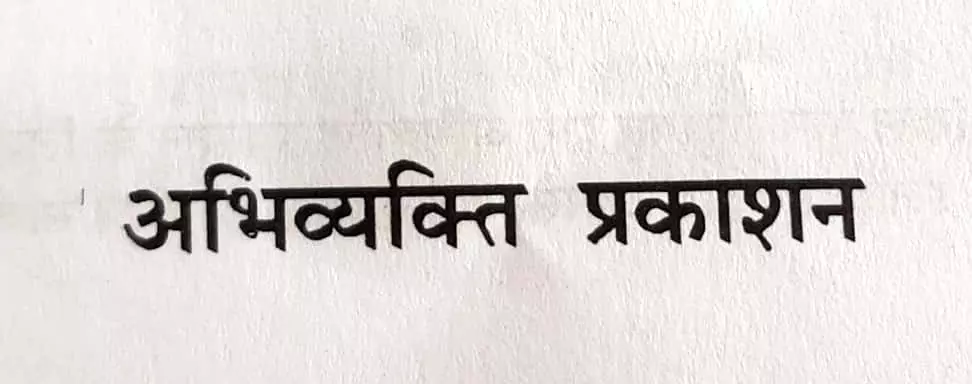 अभिव्यक्ति प्रकाशन